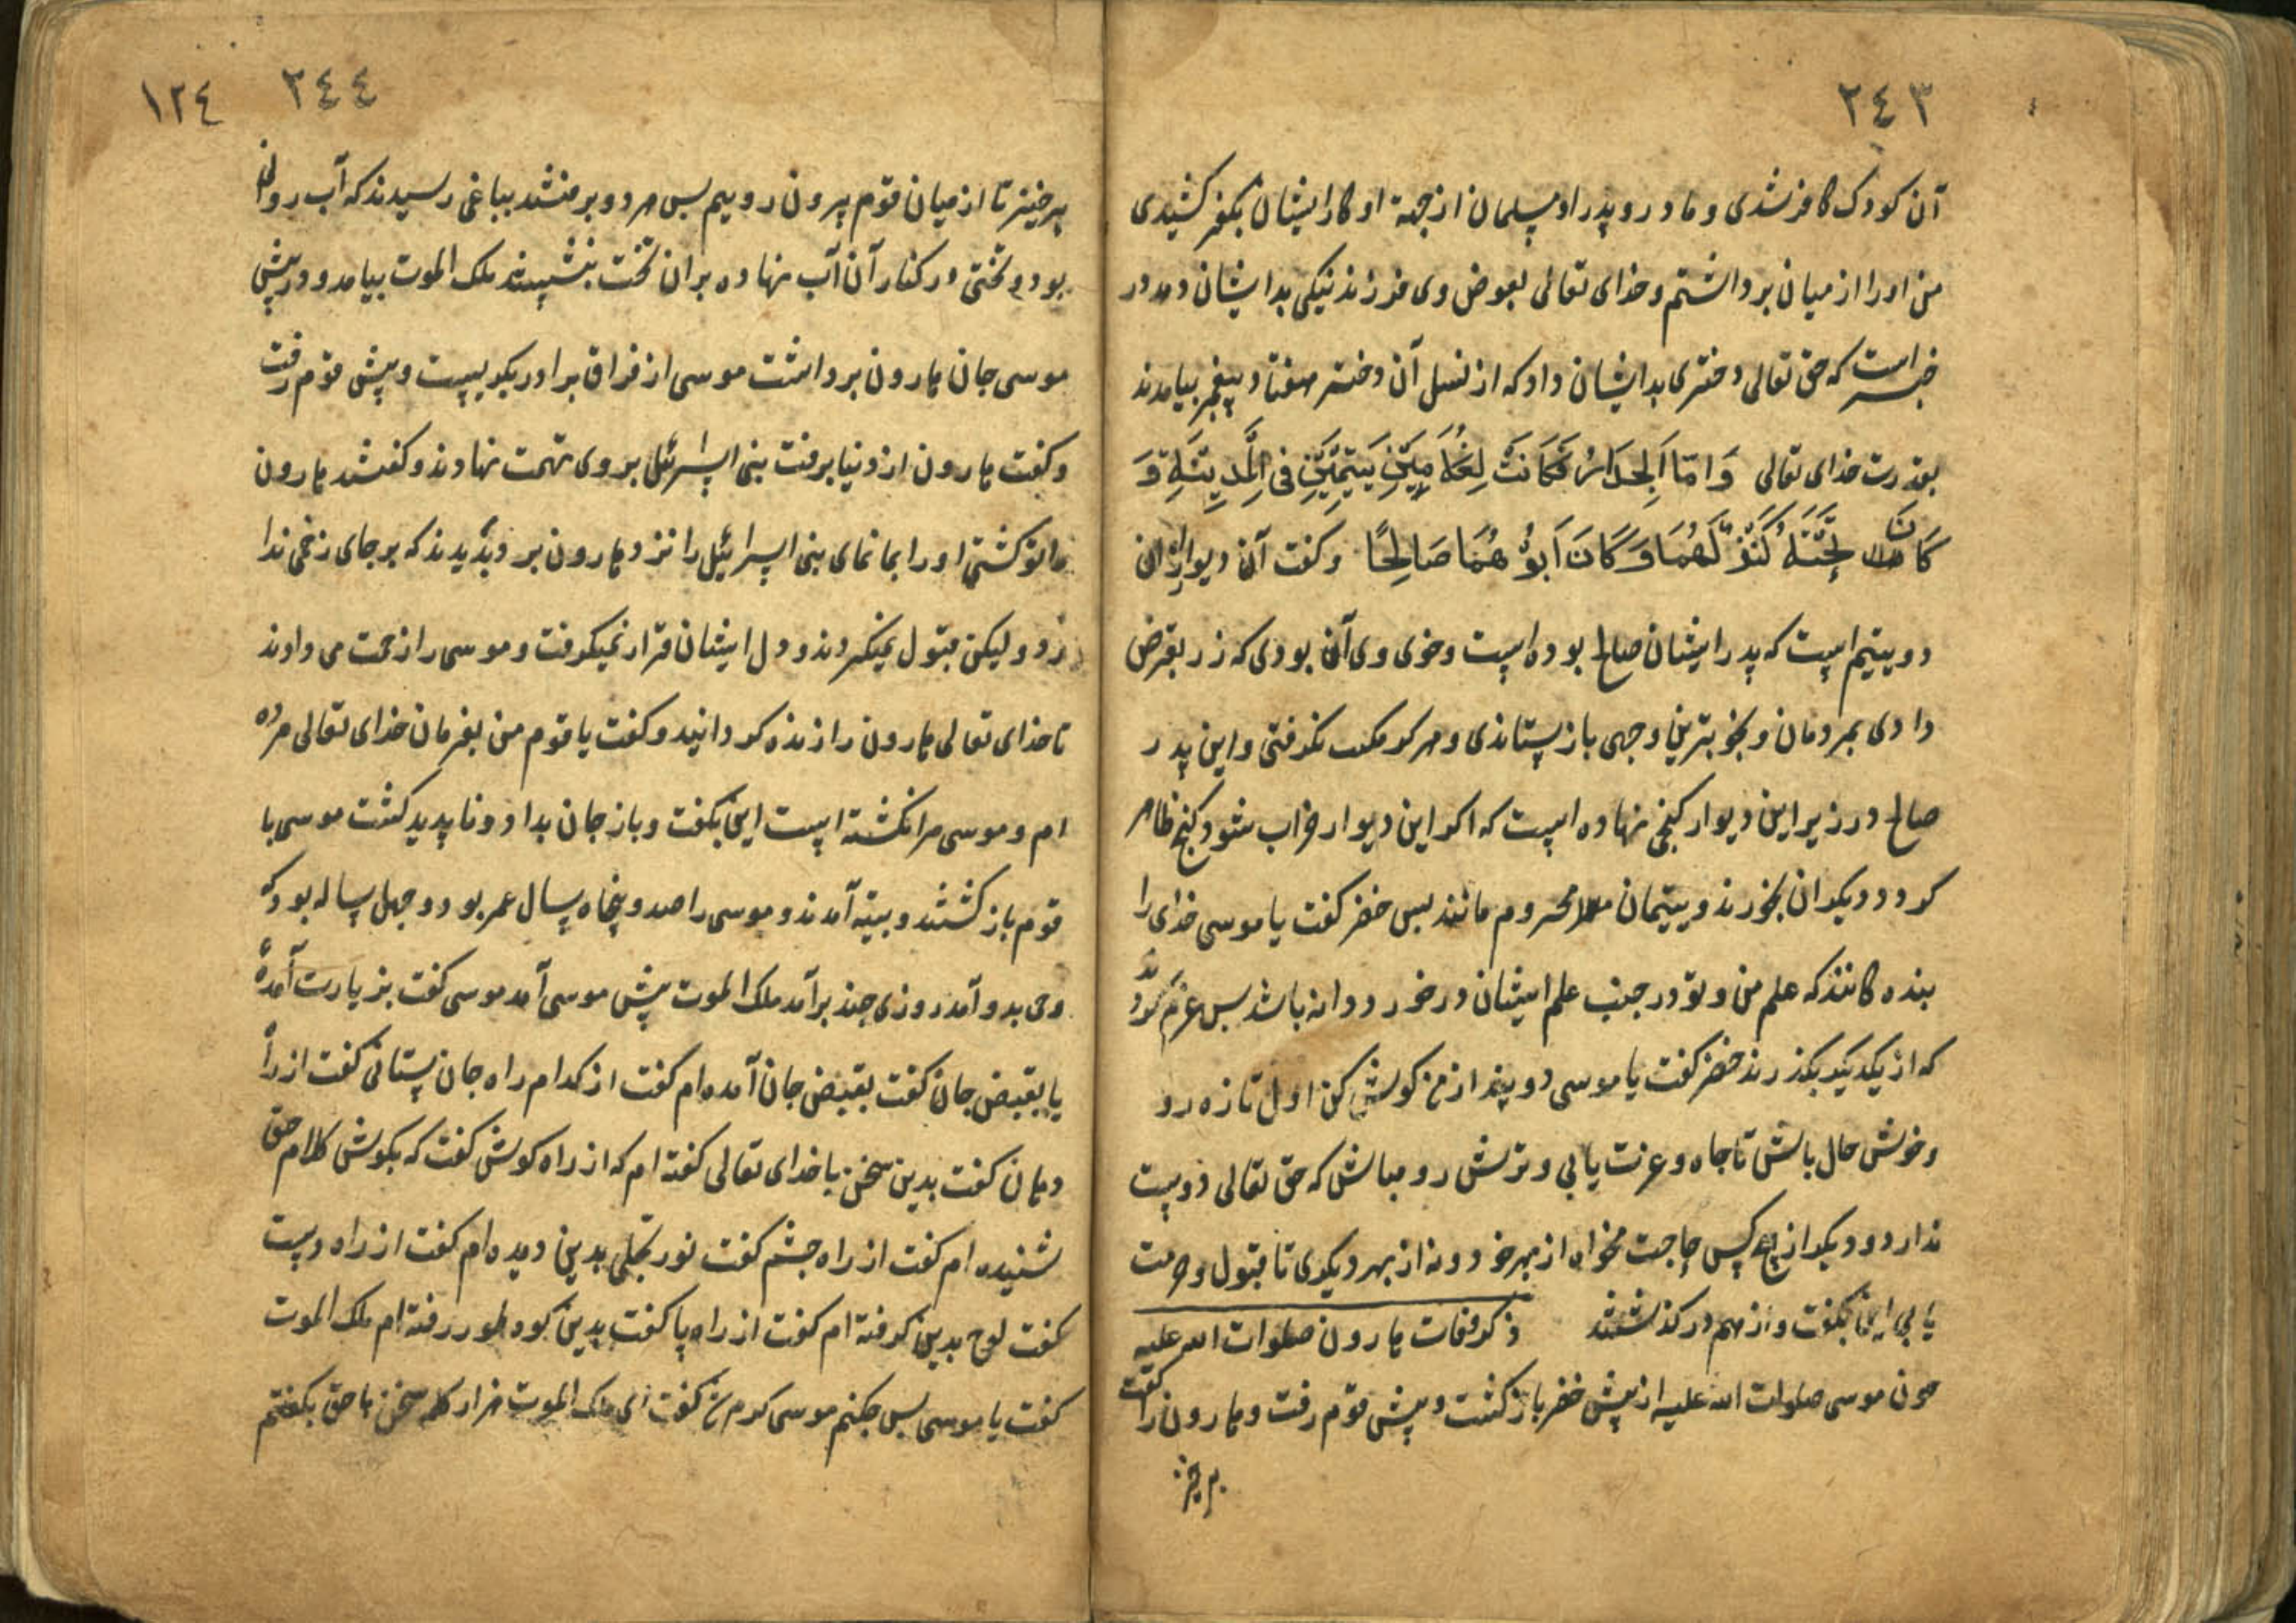 ٢٤٣
آن کودک کافر شدی و مادر و پدر او مسلمان از جهة او کار ایشان بکفر کشیدی
من او را از میان برداشتم و خدای تعالی بعوض وی فرزند نیکی بدایشان دهد در
خبر است که حق تعالی دختری بدایشان داد که از نسل آن دختر هفتاد پیغمبر بیامدند
بقدرت خدای تعالی وَامّا اَلجِدَارُ فَکَانَتْ لِغُلَامَیْنِ یَتِیمَیْنِ فی الْمَدِیْنَةِ وَ
کَانَ تَحْتَهُ کَنْزٌ لَهُمَا وَکَانَ اَبُوْهُمَا صَالِحًا و کفت آن دیوار از آن
دو یتیم است که پدر ایشان صالح بوده است و خوی وی آن بودی که زر بقرض
دادی بمردمان و بخوبترین وجهی باز ستاندی و هرکز مکسب نکرفتی و این پدر
صالح در زیر این دیوار کنجی نهاده است که اکر این دیوار خراب شود کنج ظاهر
کردد دیکران بخورند و یتیمان محروم مانند بس خضر کفت یا موسی خدای را
بنده کانند که علم من و تو در جنب علم ایشان در خور دوانه باشد بس عزم کردند
که از یکدیکر بکذرند خضر کفت یا موسی دو پند از من کوش کن اول تازه رو
و خوش حال باش تا جاه و عزت یابی و ترش رو مباش که حق تعالی دوست
ندارد و دیکر از هیچ کس حاجت مخواه از بهر خود و نه از بهر دیکری تا قبول و حرمت
یابی این بکفت و از هم در کذشتند ذکر وفات هارون صلوات الله علیه
چون موسی صلوات الله علیه از پیش خضر باز کشت و پیش قوم رفت و هارون را کفت
برخیز
٢٤٤ ١٢٤
برخیز تا از میان قوم بیرون رویم بس هر دو برفتند بباغی رسیدند که آب روان
بود و تختی در کنار آن آب نهاده بر ان تخت بنشستند ملک الموت بیامد و در پیش
موسی جان هارون برداشت موسی از فراق برادر بکریست و پیش قوم رفت
و کفت هارون از دنیا برفت بنی اسرائیل بر وی تهمت نهادند و کفتند هارون
را تو کشتی او را بما نمای بنی اسرائیل را نزد هارون برد و بدیدند که بر جای زخمی ندا
رد و لیکن قبول نمیکردند و دل ایشان قرار نمیکرفت و موسی را زحمت می دادند
تا خدای تعالی هارون را زنده کردانید و کفت یا قوم من بفرمان خدای تعالی مرده
ام و موسی مرا نکشته است این بکفت و باز جان بداد و ناپدید کشت موسی با
قوم باز کشتند و بتیه آمدند و موسی را صد و پنجاه سال عمر بود و جهل ساله بود که
وحی بدو آمد روزی چند برآمد ملک الموت پیش موسی آمد موسی کفت بزیارت آمده
یا بقبض جان کفت بقبض جان آمده ام کفت از کدام راه جان ستانی کفت از راه
دهان کفت بدین سخن با خدای تعالی کفته ام که از راه کوش کفت که بکوش کلام حق
شنیده ام کفت از راه جشم کفت نور تجلی بدین دیده ام کفت از راه دست
کفت لوح بدین کرفته ام کفت از راه پا کفت بدین کوه طور رفته ام ملک الموت
کفت یا موسی بس جکنم موسی کرم شد کفت ای ملک الموت هزار کلمه سخن با حق بکفتم